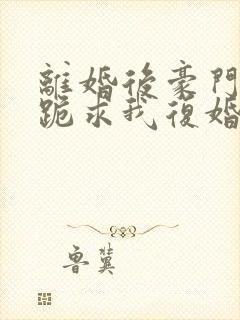 離婚後豪門
跪求我復婚
魯冀